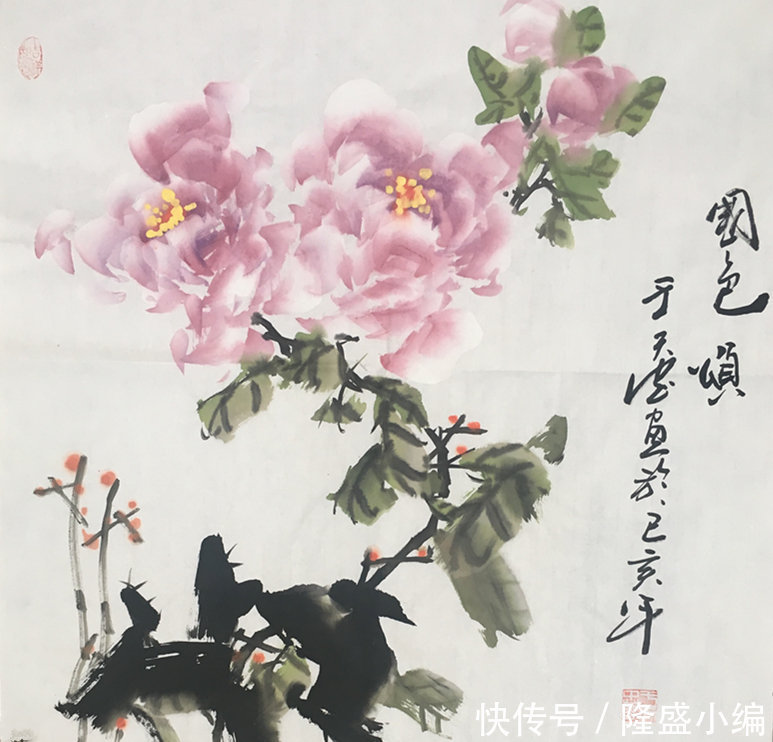 國色
頌
于天德画於己亥年
快传号 / 隆盛小编